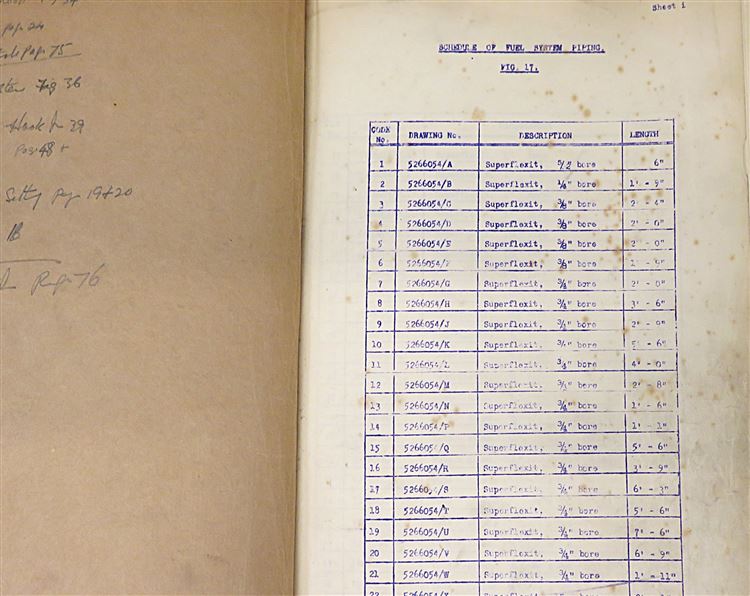 page 24
page 75
Fig 36
Hook 39
Page 48 +
Setting page 19 + 20
1B
Page 76
Sheet 1
SCHEDULE OF FUEL SYSTEM PIPING.
FIG. 17.
CODE No. DRAWING No. DESCRIPTION LENGTH
1 5266054/A Superflexit, bore 6"
2 5266054/B Superflexit, bore 1' - 9"
3 5266054/C Superflexit, 3/8" bore 2' - 4"
4 5266054/D Superflexit, 3/8" bore 2' - 0"
5 5266054/E Superflexit, 3/8" bore 2' - 0"
6 5266054/F Superflexit, 3/8" bore
7 5266054/G Superflexit, 3/4" bore 2' - 0"
8 5266054/H Superflexit, 3/4" bore 3' - 6"
9 5266054/J Superflexit, 3/4" bore 2' - 9"
10 5266054/K Superflexit, 3/4" bore 5' - 6"
11 5266054/L Superflexit, 3/4" bore 4' - 0"
12 5266054/M Superflexit, 3/4" bore 2' - 8"
13 5266054/N Superflexit, 3/4" bore 1' - 6"
14 5266054/P Superflexit, 3/4" bore 1' - 1"
15 5266054/Q Superflexit, 3/4" bore 5' - 6"
16 5266054/R Superflexit, 3/4" bore 3' - 9"
17 5266054/S Superflexit, 3/4" bore 6' - 3"
18 5266054/T Superflexit, 3/4" bore 5' - 6"
19 5266054/U Superflexit, 3/4" bore 7' - 6"
20 5266054/V Superflexit, 3/4" bore 6' - 9"
21 5266054/W Superflexit, 3/4" bore 1' - 11"
22